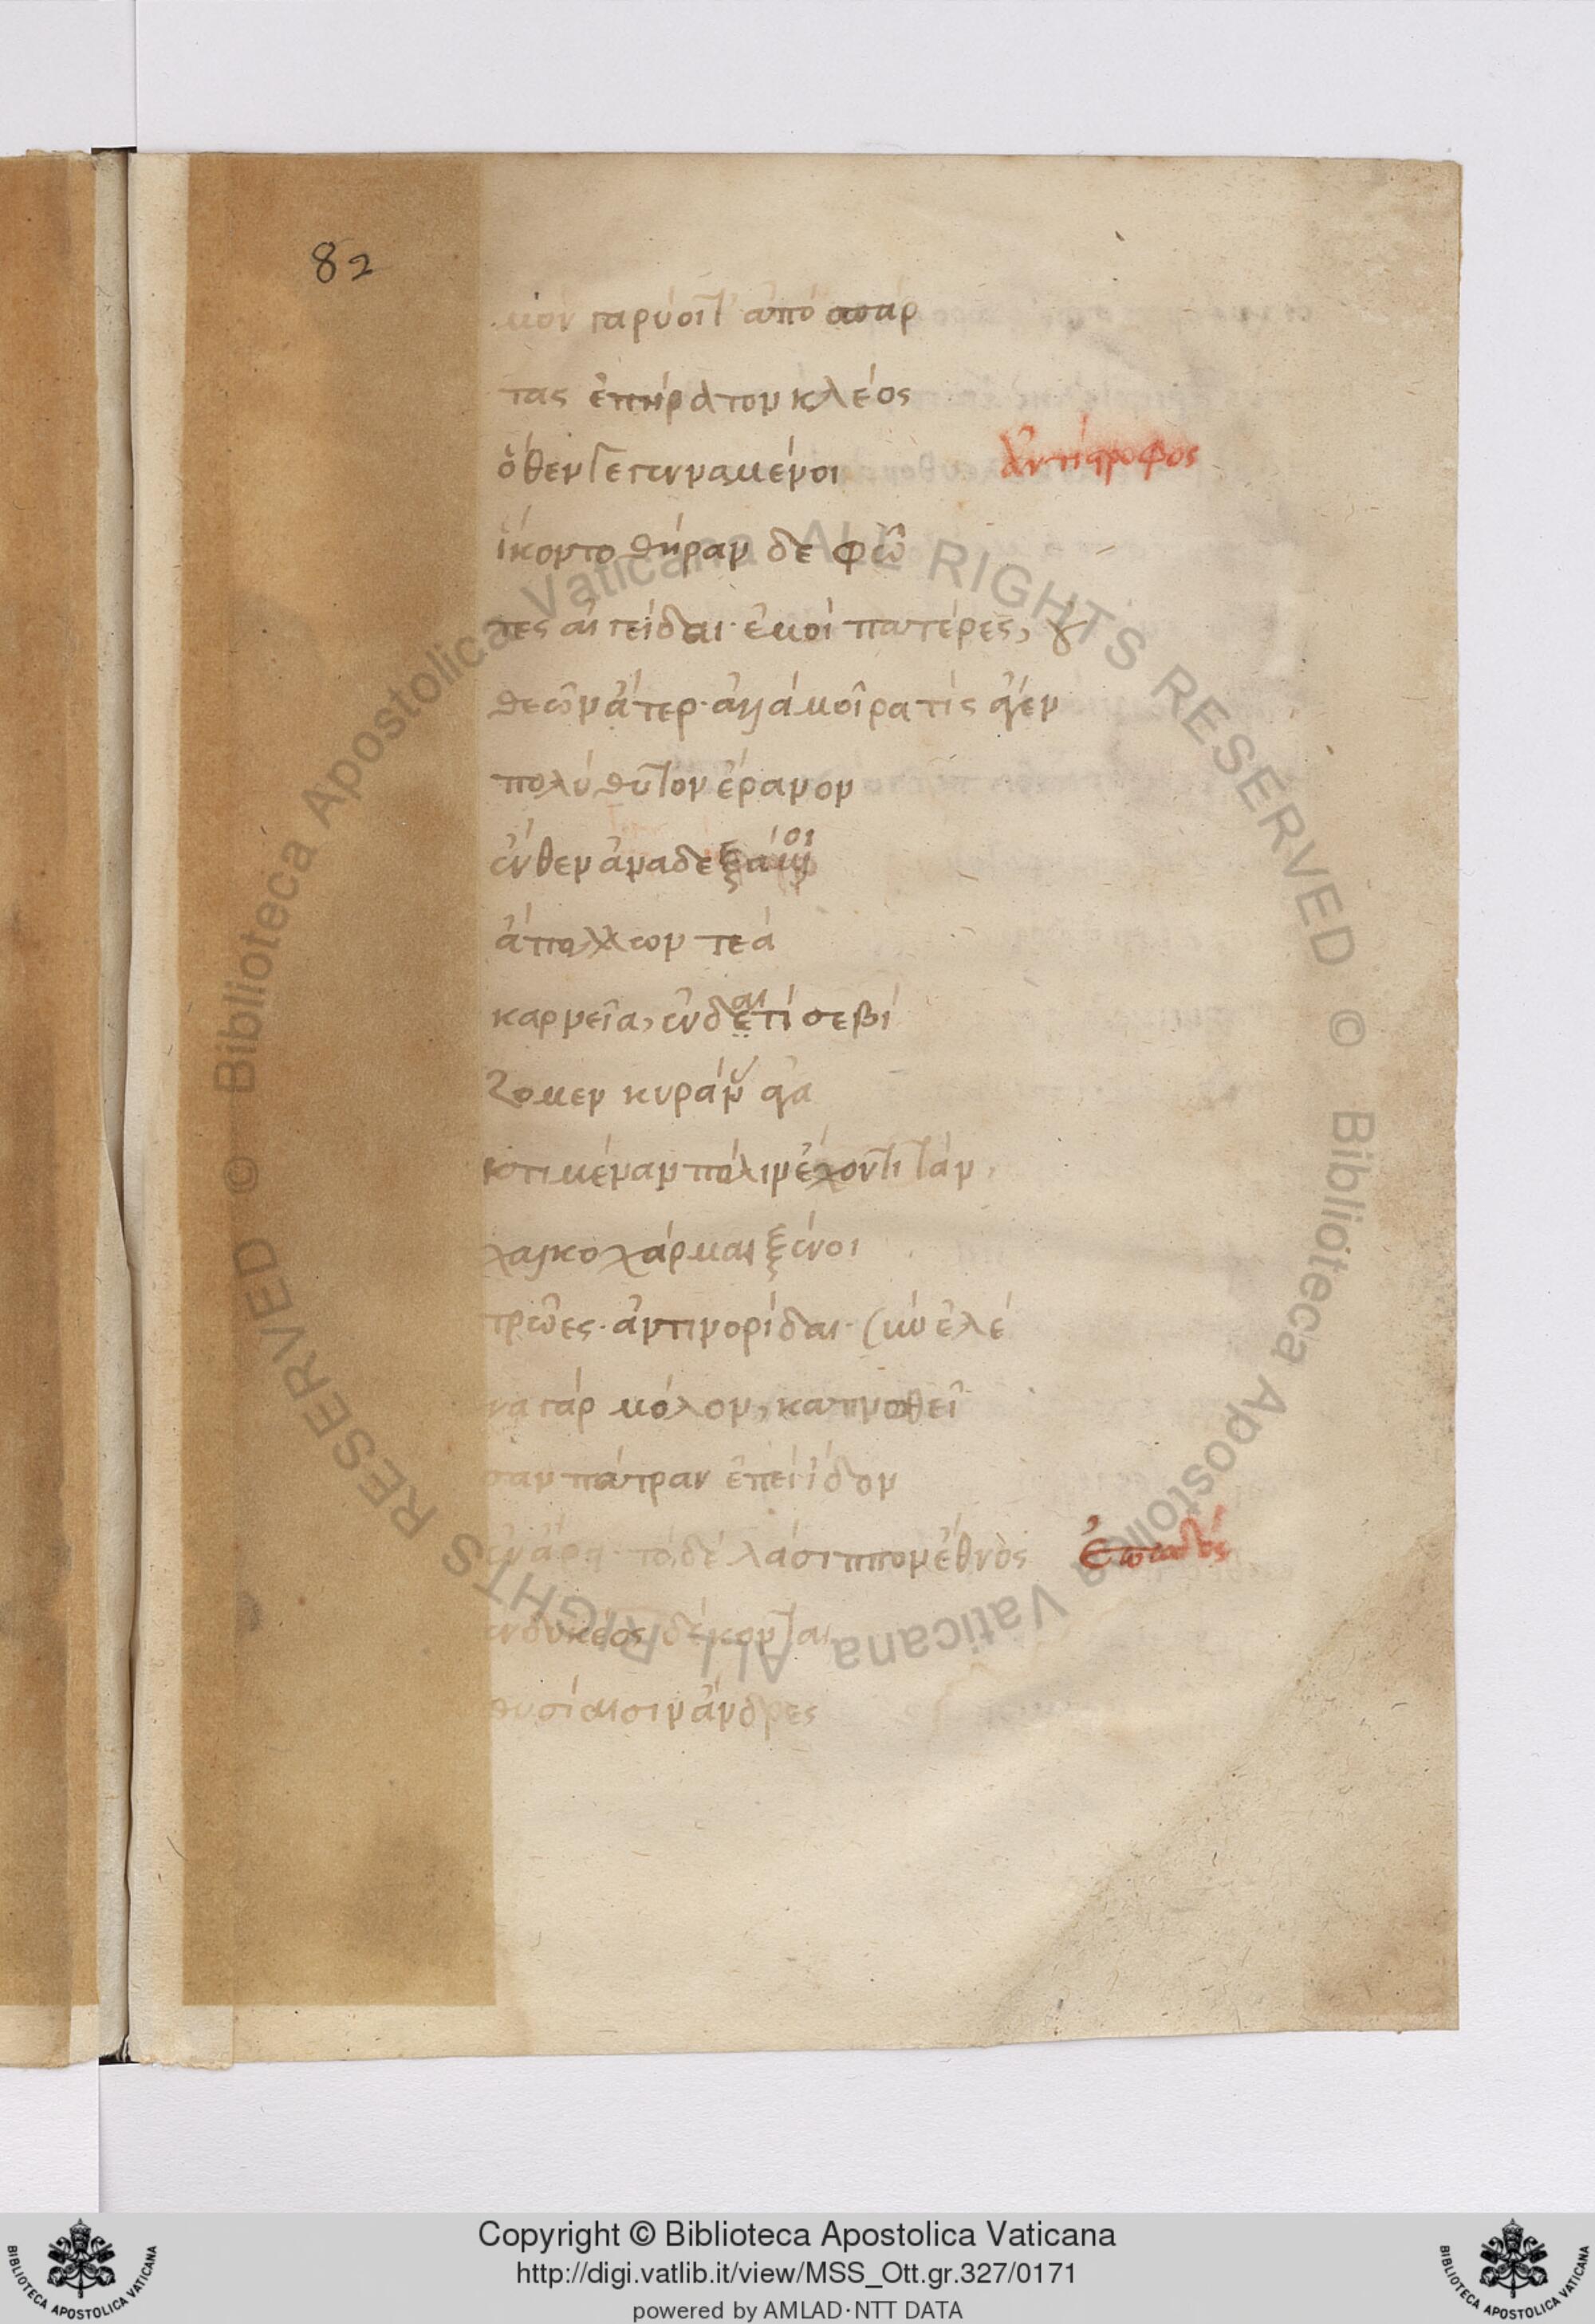 82
μον γαρύοντ' ἀπὸ σπάρ
τας ἐπήρατον κλέος
ὅθεν γεγενναμένοι
ἀντίστροφος
ἵκοντο θήραν δε φῶ
τες αἰγείδαι· ἐμοὶ πατέρες, οὐ
θεῶν ἄτερ· ἀλλὰ μοῖρα τίς ἆγεν
πολύθυτον ἔρανον
ἔνθεν ἀναδεξάμενοι
ἄπολλον τεᾶ
καρνεῖα, ἐν δαιτὶ σεβί
ζομεν κυράνας ἀγα
κτιμέναν πόλιν ἔχοντι τὰν
χαλκοχάρμαι ξένοι
τρῶες· ἀντηνορίδαι· σὺν ἑλέ
να γὰρ μόλον, καπνωθεῖ
σαν πάτραν ἐπεὶ ἴδον
ἐν ἄρει· τὸ δὲ λάσιππον ἔθνος
ἐπωδός
ἐνδυκέως δέκονται
θυσίαισιν ἄνδρες
Biblioteca Apostolica Vaticana ALL RIGHTS RESERVED © Biblioteca Apostolica Vaticana ALL RIGHTS RESERVED ©
Copyright © Biblioteca Apostolica Vaticana
http://digi.vatlib.it/view/MSS_Ott.gr.327/0171
powered by AMLAD·NTT DATA
BIBLIOTECA APOSTOLICA VATICANA
BIBLIOTECA APOSTOLICA VATICANA